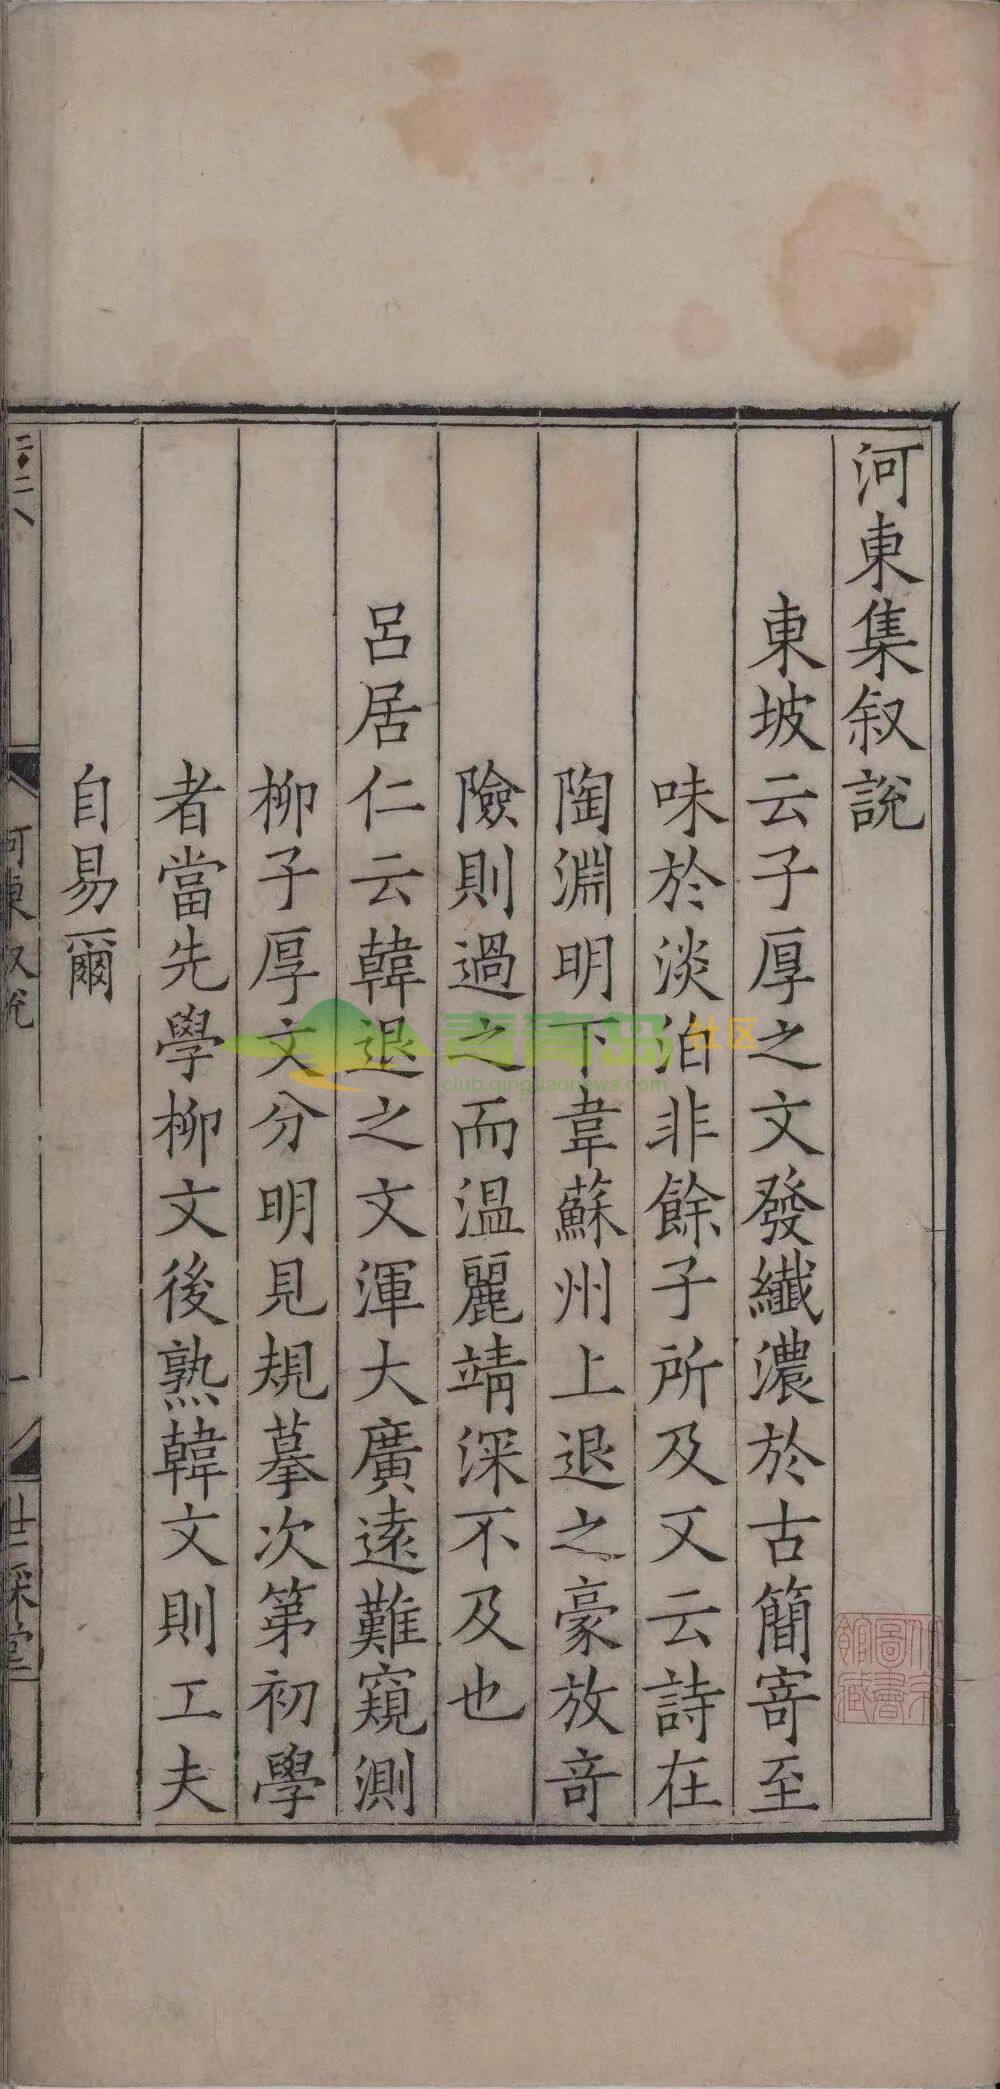 河東集叙說
東坡云子厚之文發纖濃於古簡寄至
味於淡泊非餘子所及又云詩在
陶淵明下韋蘇州上退之豪放竒
險則過之而温麗靖深不及也
呂居仁云韓退之文渾大廣遠難窺測
柳子厚文分明見規摹次第初學
者當先學柳文後熟韓文則工夫
自易爾
河東叙說
一
世綵堂
青青岛社区
club.qingdaonews.com